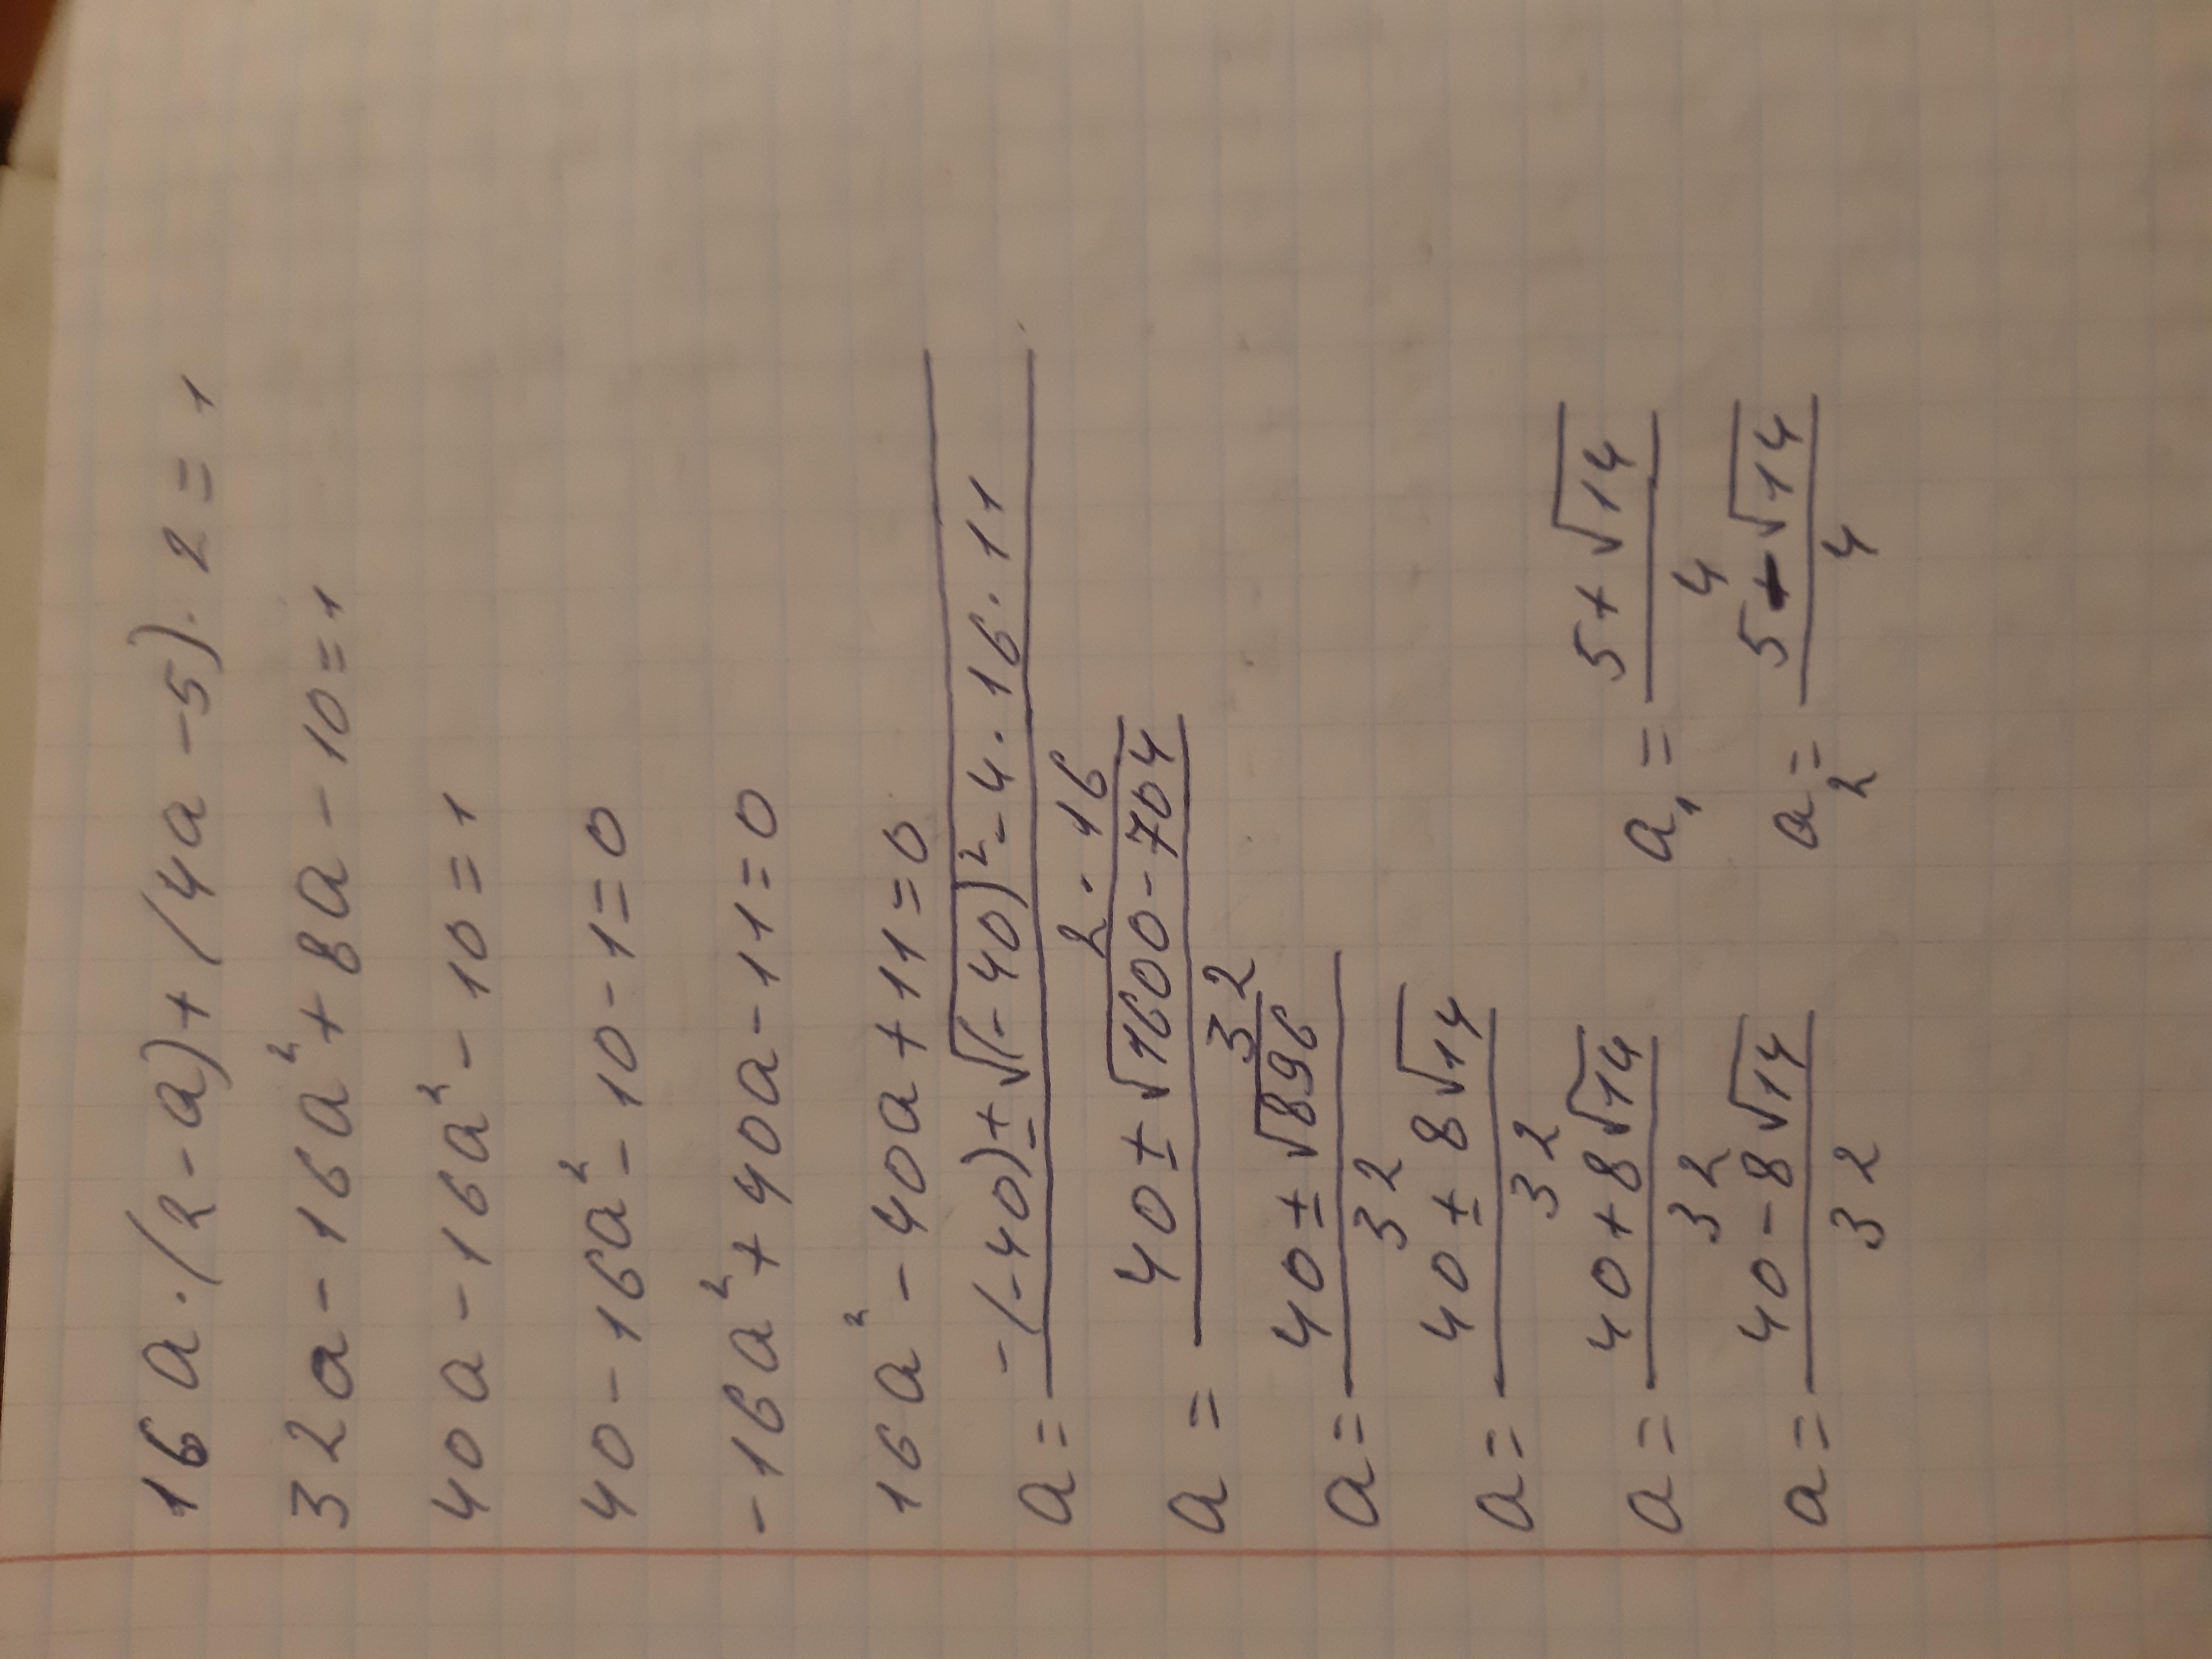 16a·(2-a)+(4a-5)·2=1
32a-16a²+8a-10=1
40a-16a²-10=1
40-16a²-10-1=0
-16a²+40a-11=0
16a²-40a+11=0
a=(-(-40)±√((-40)²-4·16·11))/(2·16)
a=(40±√(1600-704))/32
a=(40±√896)/32
a=(40±8√14)/32
a=(40+8√14)/32 a₁=(5+√14)/4
a=(40-8√14)/32 a₂=(5-√14)/4